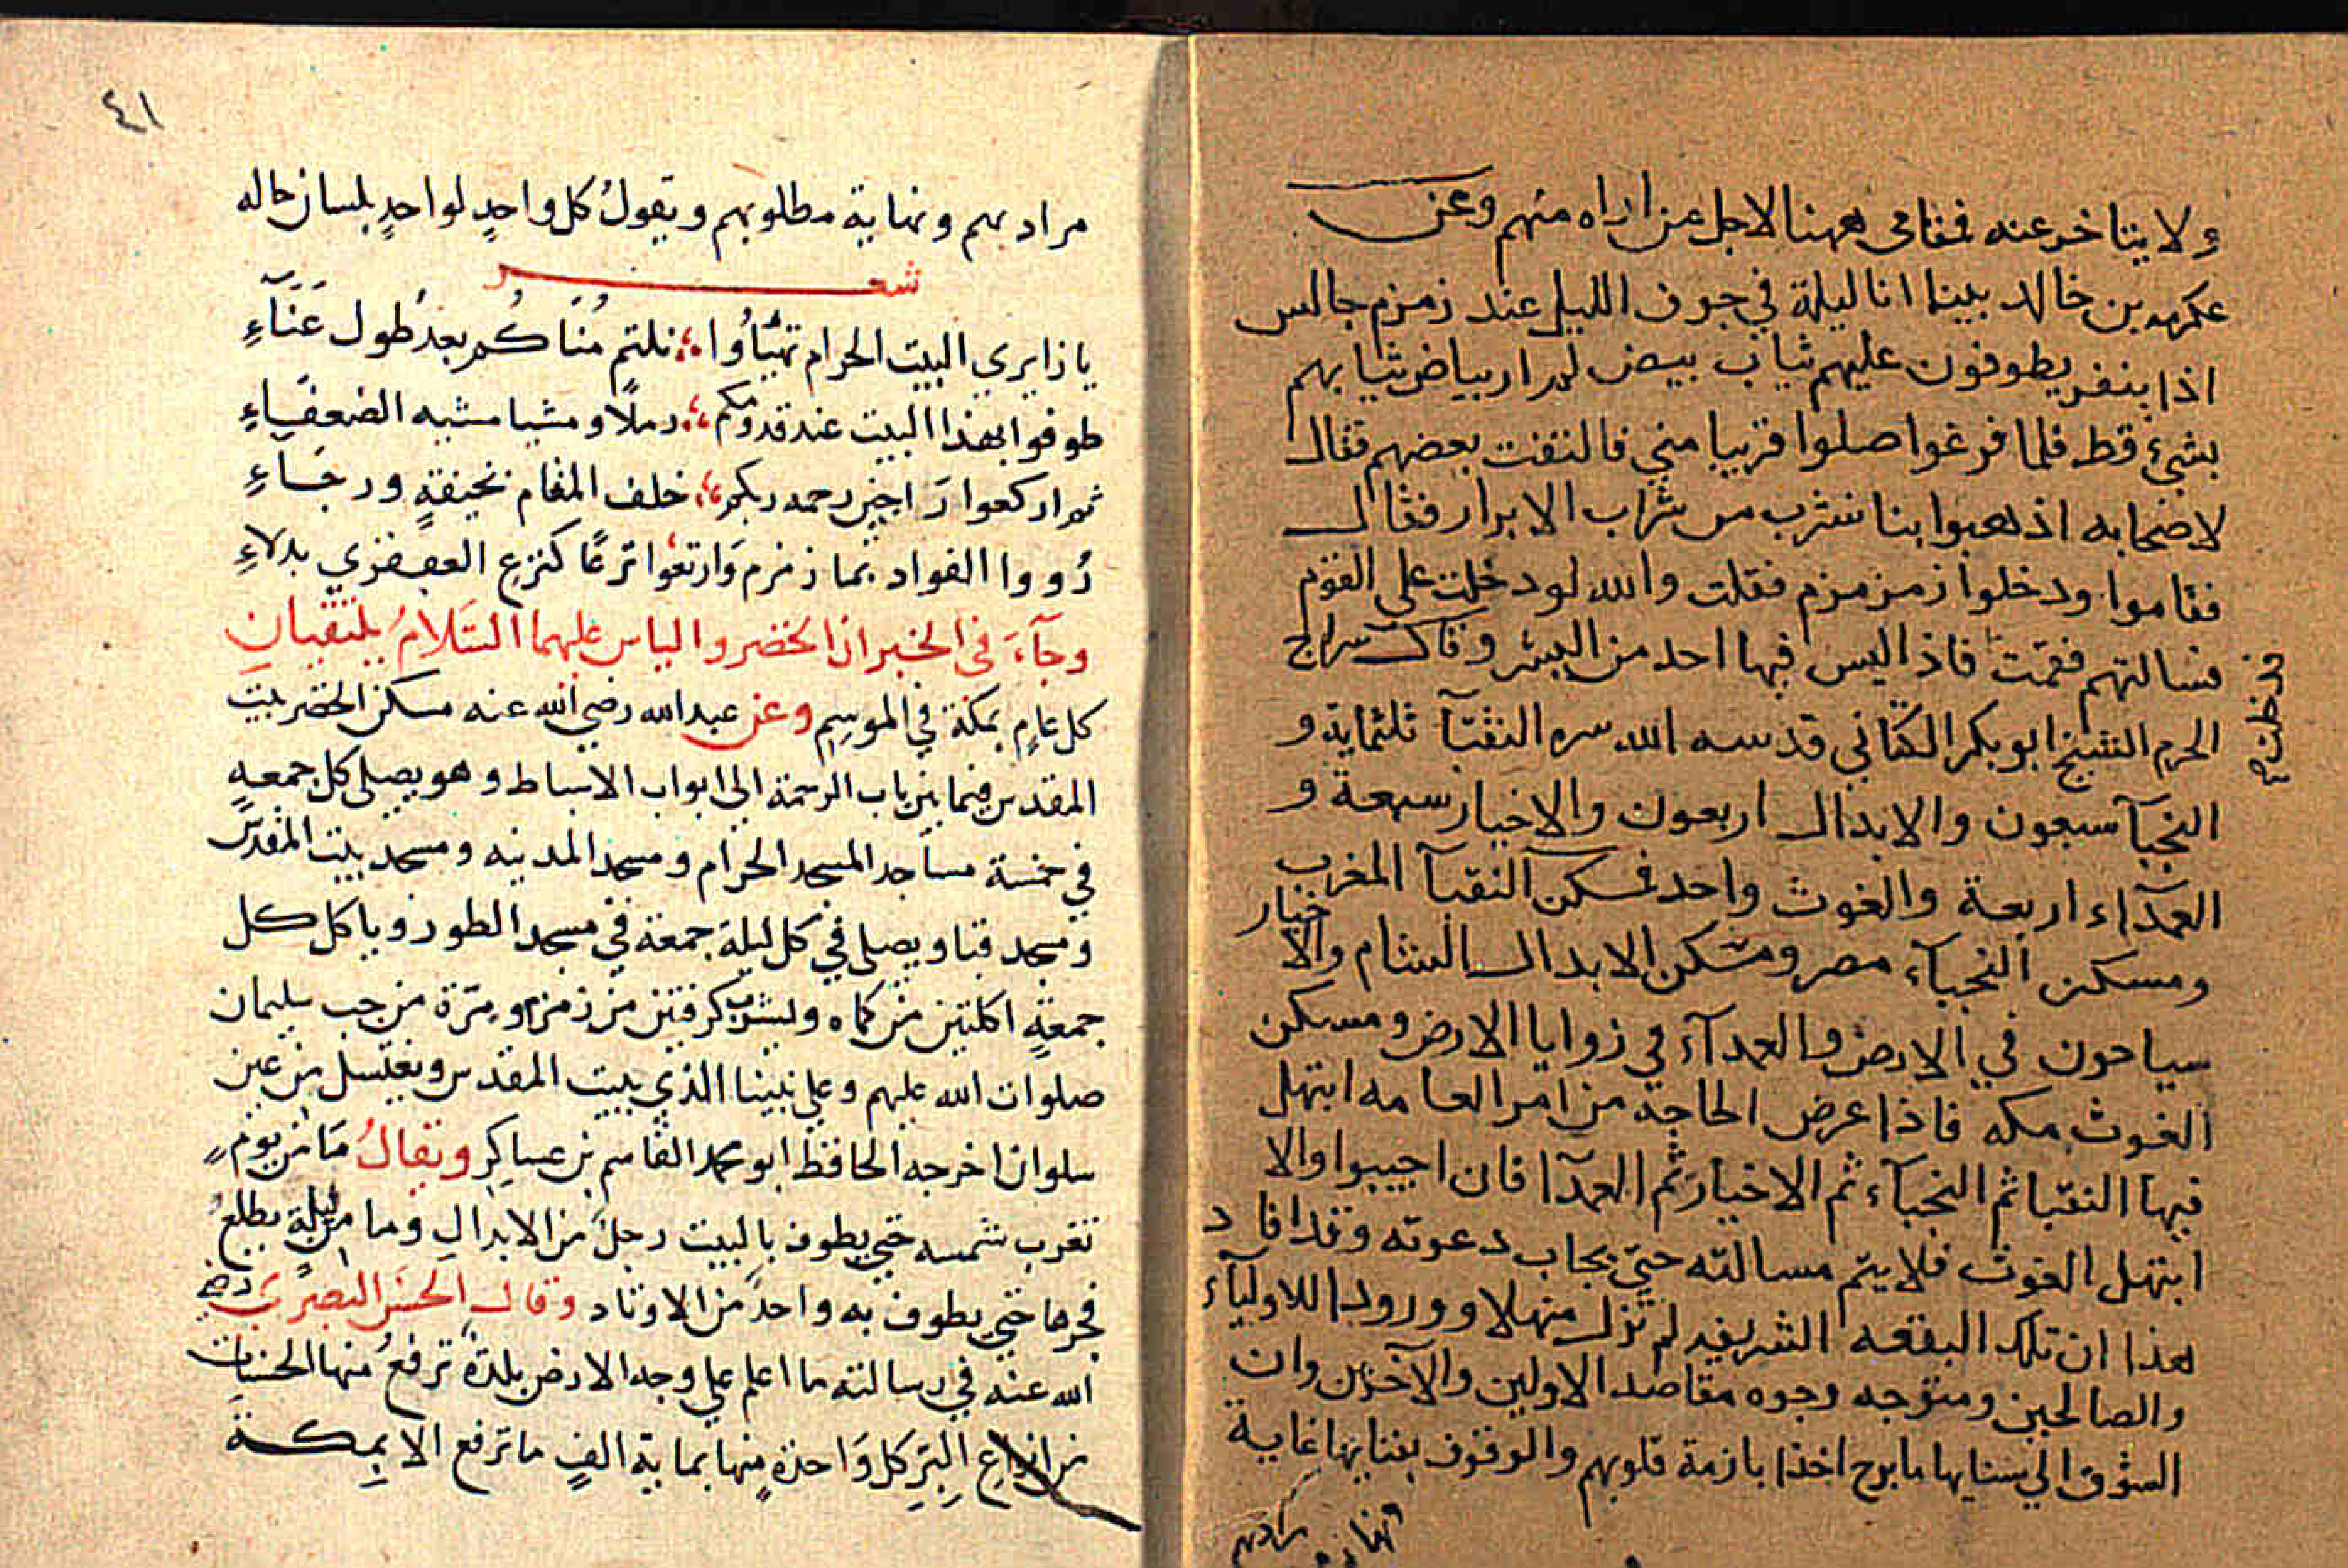 ولا يتاخر عنه فقامى ههنا لاجل من اراه منهم وعن
عكرمه بن خالد بينا انا ليلة في جوف الليل عند زمزم جالس
اذا بنفر يطوفون عليهم ثياب بيض لم ار بياض ثيابهم
بشئ قط فلما فرغوا صلوا قريبا مني فالتفت بعضهم فقال
لاضحابه اذهبوا بنا نشرب من شراب الابرار فقال
فقاموا ودخلوا زمزمزم فقلت والله لو دخلت على القوم
فسالتهم فقمت فاذا ليس فيها احد من البشر وقال سراج
فدخلت
الحرم الشيخ ابو بكر الكتاني قدسه الله سره النقبآ ثلثماية و
النجبآ سبعون والابدال اربعون والاخيار سبعة و
العمدآء اربعة والغوث واحد فمسكن النقبآ المغرب
ومسكن النجبآء مصر ومسكن الابدال الشام والاخيار
سياحون في الارض والعمدآء في زوايا الارض ومسكن
الغوث مكه فاذا عرض الحاجة من امر العامه ابتهل
فيها النقبا ثم النجبآء ثم الاخيار ثم العمدآ فان اجيبوا والا
ابتهل الغوث فلا يتم مسالته حتى يجاب دعوته وقد افاد
هذا ان تلك البقعه الشريفه لم تزل منهلا وورودا للاوليآء
والصالحين ومتوجه وجوه مقاصد الاولين والآخرين وان
الشوق الي سنايها ما برح اخذا بازمة قلوبهم والوقوف بفنايها غاية
مرادهم
٤١
مرادهم ونهاية مطلوبهم ويقول كل واحدٍ لواحدٍ بلسان حاله
شعر
يا زايري البيت الحرام تهيّأوا نلتم مُناكم بعد طول عَنَآءِ
طوفوا بهذا البيت عند قدومكم رملًا ومشيا مشبه الضعفاءِ
ثم اركعوا راجين رحمه ربكم خلف المقام بخيفةٍ ورجَاءِ
رُووا الفواد بما زمزم وارتعوا ترعًا كنزع العبقري بدلاءِ
وجآءَ في الخبر ان الخضر والياس عليهما السَّلامُ يلتقيان
كل عامٍ بمكة في الموسِمِ وعن عبدالله رضي الله عنه مسكن الخضر ببيت
المقدس فيما بين باب الرحمة الى ابواب الاسباط وهو يصلى كل جمعهٍ
في خمسة مساجد المسجد الحرام ومسجد المدينه ومسجد بيت المقدس
ومسجد قبا ويصلى في كل ليلة جمعة في مسجد الطور وياكل كل
جمعةٍ اكلتين من كماه ويشرب كرفتين من زمزم ومرّة من جب سليمان
صلوات الله عليهم وعلى نبينا الذي ببيت المقدس ويغتسل من عين
سلوان اخرجه الحافظ ابو محمد القاسم بن عساكِرٍ ويقالُ مَا من يوم
تغرب شمسه حتى يطوف بالبيت رجلٌ من الابدالِ وما من ليلةٍ يطلع
فجرها حتى يطوف به واحدٌ من الاوتاد وقال الحسن البصري رضي
الله عنه في رسالته ما اعلم على وجه الارض بلدةً ترفعُ منها الحسنات
من انواع البِرِّ كل واحدةٍ منها بماية الفٍ ما ترفع الا بِمكة